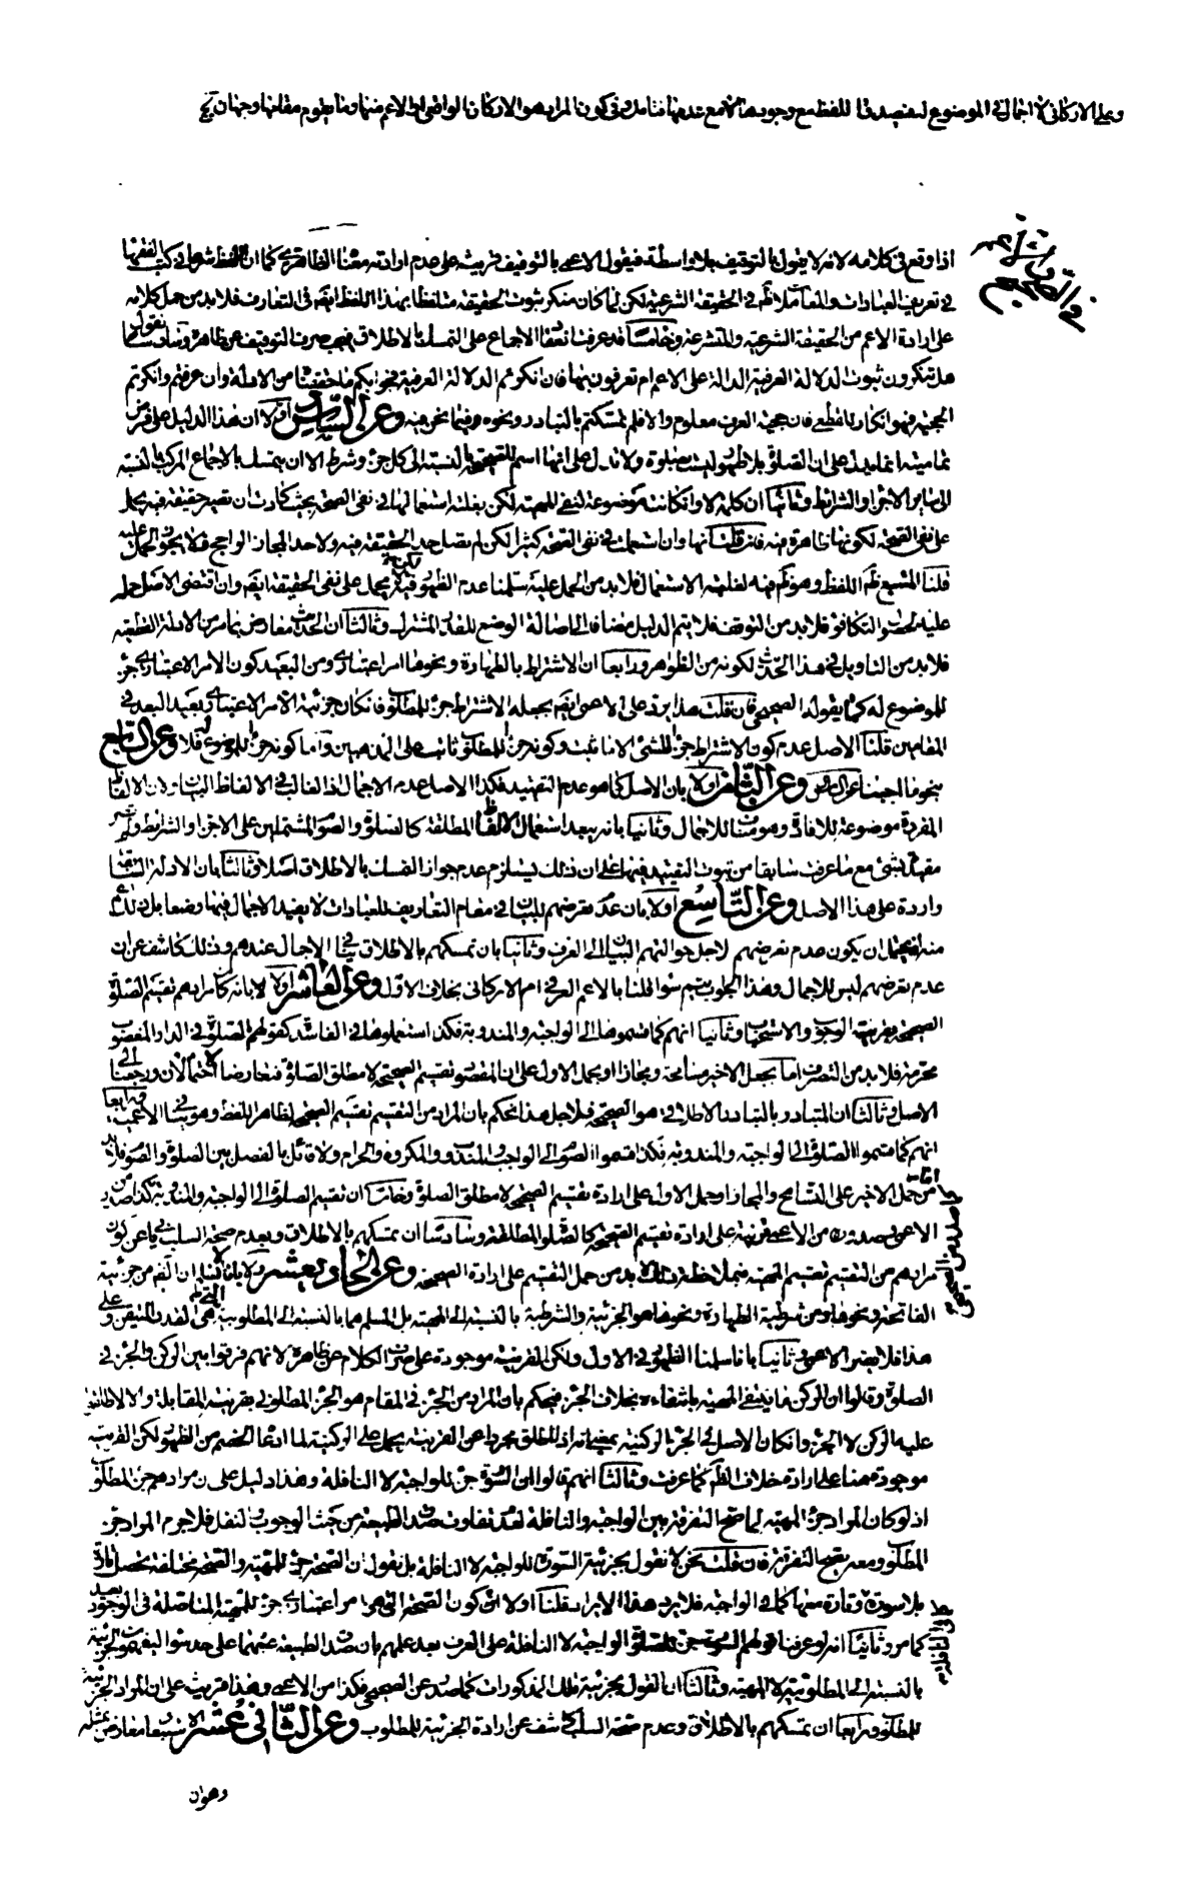 وعلى الاركانى لا اجمال فى الموضوع له فيصدق اللفظ مع وجودها لا مع عدمها فتامل وفى كون المراد هو الاركان الواقعى او الاعم منها وما يقوم مقامها وجهان
فى الصحيح والاعم
اذا وقع فى كلامه لانه لا يقول بالتوقيف بلا واسطة فيقول الاعمى بالتوقيف قرينة على عدم ارادته معناه الظاهرى كما ان لفظ فى كتب الفقهاء
فى تعريف العبادات والمعاملات ظاهر فى الحقيقة الشرعية لكن لما كان منكر ثبوت الحقيقة متلفظا بهذا اللفظ ايضا فى التعارف فلا بد من حمل كلامه
على ارادة الاعم من الحقيقة الشرعية والمتشرعة وخامسا قد عرفت انعقاد الاجماع على التمسك بالاطلاق فيجب صرف التوقيف عن ظاهره وسادسا نقول
هل تنكرون ثبوت الدلالة العرفية الدالة على الاعم ام تعرفون بها فان انكرتم الدلالة العرفية فجوابكم ما حققنا من الادلة وان عرفتم وانكرتم
الحجية فهو انكار لما قطعى فان حجية العرف معلوم والا فلم تمسكتم بالتبادر ونحوه وفيما نحن فيه وعن السادس اولا ان هذا الدليل على فرض
تماميته انما يدل على ان الصلوة بلا طهور ليست بصلوة ولا تدل على انها اسم للصحيحة بالنسبة الى كل جزء وشرط الا ان يتمسك بالاجماع المركب بالنسبة
الى ساير الاجزاء والشرايط وثانيا ان كلمة لا وان كانت موضوعة لنفى المهية لكن بغلبة استعمالها فى نفى الصحة بحيث كادت ان تصير حقيقة فيه يحمل
على نفى الصحة لكونها ظاهرة فيه فان قلت انها وان استعملت فى نفى الصحة كثيرا لكن لم تصل حد الحقيقة فيه ولا حد المجاز الراجح فلا يجوز الحمل عليه
قلنا المتبع ظهور اللفظ وهو ظاهر فيه لغلبة الاستعمال فلا بد من الحمل عليه سلمنا عدم الظهور فيه لكن لا يحمل على نفى الحقيقة ايضا وان اقتضى الاصل حمله
عليه لحصول التكافؤ فلا بد من التوقف فلا يتم الدليل مضافا الى اصالة الوضع للقدر المشترك وثالثا ان الحديث معارض بما مر من الادلة القطعية
فلا بد من التاويل فى هذا الحديث لكونه من الظواهر ورابعا ان الاشتراط بالطهارة ونحوها امر اعتبارى ومن البعيد كون الامر الاعتبارى جزء
للموضوع له كما يقوله الصحيحى فان قلت هذا يرد على الاعمى ايضا بجعله الاشتراط جزء للمطلوب فكان جزئية الامر الاعتبارى بعيد البعد فى
المقامين قلنا الاصل عدم كون الاشتراط جزء للشئ الا ما ثبت وكونه جزء للمطلوب ثابت على المذهبين واما كونه جزء للموضوع له فلا وعن السابع
بنحو ما اجبنا عن السادس وعن الثامن اولا بان الاصل كما هو عدم التقييد فكذا الاصل عدم الاجمال اذ الغالب فى الالفاظ البيان ولان الالفاظ
المفردة موضوعة للافادة وهو مناف للاجمال وثانيا بانه يبعد استعمال الالفاظ المطلقة كالصلوة والصوم المشتملين على الاجزاء والشرايط ولم تصر
مقيدة بشئ مع ما عرفت سابقا من ثبوت التقييد فيها على ان ذلك يستلزم عدم جواز التمسك بالاطلاق اصلا وثالثا بان الادلة السابقة
واردة على هذا الاصل وعن التاسع اولا بان عدم تعرضهم للبيان فى مقام التعاريف للعبادات لا يفيد الاجمال فيها وضعا بل
منه فيحتمل ان يكون عدم تعرضهم لاجل حوالتهم البيان الى العرف وثانيا بان تمسكهم بالاطلاق ينافى الاجمال عندهم وذلك كاشف عن ان
عدم تعرضهم ليس للاجمال وهذا الجواب يتم سواء قلنا بالاعم العرفى ام الاركانى بخلاف الاول وعن العاشر اولا بانه كما مرادهم تقسيم الصلوة
الصحيحة بقرينة الوجوب والاستحباب وثانيا انهم كما قسموها الى الواجبة والمندوبة فكذا استعملوها فى الفاسد كقولهم الصلوة فى الدار المغصوب
محرمة فلا بد من التصرف اما بجعل الاخير مسامحة ومجازا او بحمل الاول على ان المقصود تقسيم الصحيحة لا مطلق الصلوة فتعارضا الاحتمالان ورجعنا الى
الاصل وثالثا ان المتبادر بالتبادر الاطلاقى هو الصحيحة فلاجل هذا نحكم بان المراد من التقسيم تقسيم الصحيح لظاهر اللفظ وهو لا ينافى الاعمية ورابعا
انهم كما قسموا الصلوة الى الواجبة والمندوبة فكذا قسموا الصوم الى الواجب والمندوب والمكروه والحرام ولا قائل بالفصل بين الصلوة والصوم فلا بد
اما من حمل الاخير على التسامح والمجاز او حمل الاول على ارادة تقسيم الصحيحة لا مطلق الصلوة وخامسا ان تقسيم الصلوة الى الواجبة والمندوبة كذا صدر من
الاعمى فصدوره من الاعمى قرينة على ارادة تقسيم الصحيحة كالصلوة المطلقة وسادسا ان تمسكهم بالاطلاق وبعدم صحة السلب ياى عن كون
مرادهم من التقسيم تقسيم المهية فبملاحظة ذلك لا بد من حمل التقسيم على ارادة الصحيحة وعن الحاديعشر اولا بانا لا نسلم ان الفهم من جزئية
الفاتحة ونحوها ومن شرطية الطهارة ونحوها هو الجزئية والشرطية بالنسبة الى المهية بل المسلم هما بالنسبة الى المطلوبية هى القدر المتيقن وعلى
هذا فلا يضر الاعمى وثانيا بانا سلمنا الظهور فى الاول ولكن القرينة موجودة على صرف الكلام عن ظاهره لانهم فرقوا بين الركن والجزء فى
الصلوة وقالوا ان الركن ما ينتفى المهية بانتفاءه بخلاف الجزء فيحكم بان المراد من الجزء فى المقام هو الجزء المطلوبى بقرينة المقابلة والا لاطلق
عليه الركن لا الجزء وان كان الاصل فى الجزء الركنية بمعنى انه اذا اطلق مجردا عن القرينة يحمل على الركنية لما ادعاه الخصم من الظهور لكن القرينة
موجودة هنا على ارادة خلاف الظاهر كما عرفت وثالثا انهم قالوا ان السورة جزء للواجبة لا النافلة وهذا دليل على ان مرادهم جزء المطلوب
اذ لو كان المراد جزء المهية لما صح التفرقة بين الواجبة والنافلة لعدم تفاوت صدق الطبيعة من حيث الوجوب والنفل فلا جرم المراد جزء
المطلوب ومعه يصح التفرقة فان قلت نحن لا نقول بجزئية السورة للواجبة لا النافلة بل نقول ان الصحة جزء للمهية والصحة مختلفة يحصل تارة
بلا سورة وتارة معها كما فى الواجبة فلا يرد هذا الايراد قلنا اولا ان كون الصحة التى هى امر اعتبارى جزء للمهية المتاصلة فى الوجود بعيد
كما مر وثانيا انه لو عرفنا قولهم السورة جزء للصلوة الواجبة لا النافلة على العرف بعد علمهم بان صدق الطبيعة عليهما على حد سواء ليفهمون الجزئية
بالنسبة الى المطلوبية لا المهية وثالثا ان القول بجزئية تلك المذكورات كما صدر عن الصحيحى فكذا من الاعمى وهذا قرينة على ان المراد الجزئية
للمطلوب ورابعا ان تمسكهم بالاطلاق وعدم صحة السلب كاشف عن ارادة الجزئية للمطلوب وعن الثانى عشر الاستبعاد معارض بمثله
وهو ان